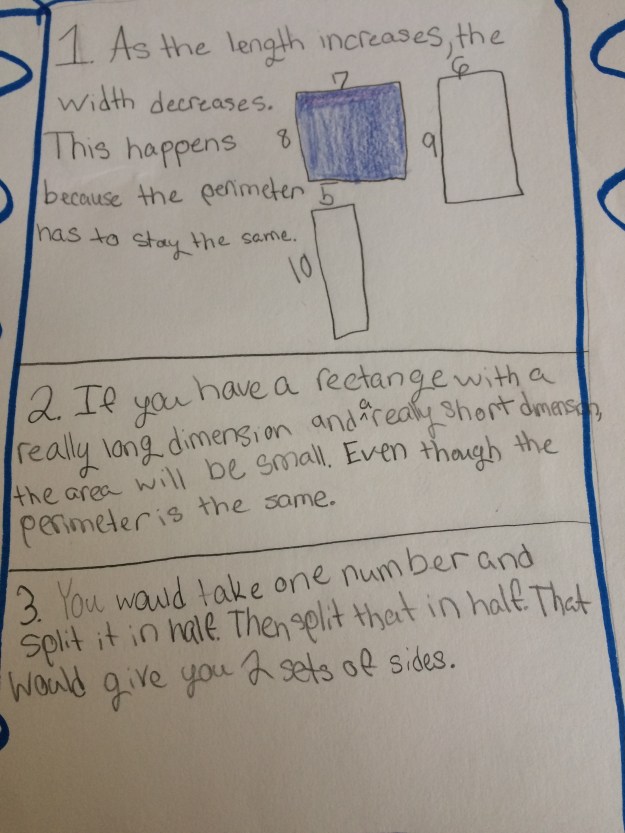 1. As the length increases, the
7
6
width decreases.
This happens
8
9
because the perimeter
5
has to stay the same.
10
2. If you have a rectange with a
really long dimension and a really short dimension,
the area will be small. Even though the
perimeter is the same.
3. You would take one number and
split it in half. Then split that in half. That
would give you 2 sets of sides.